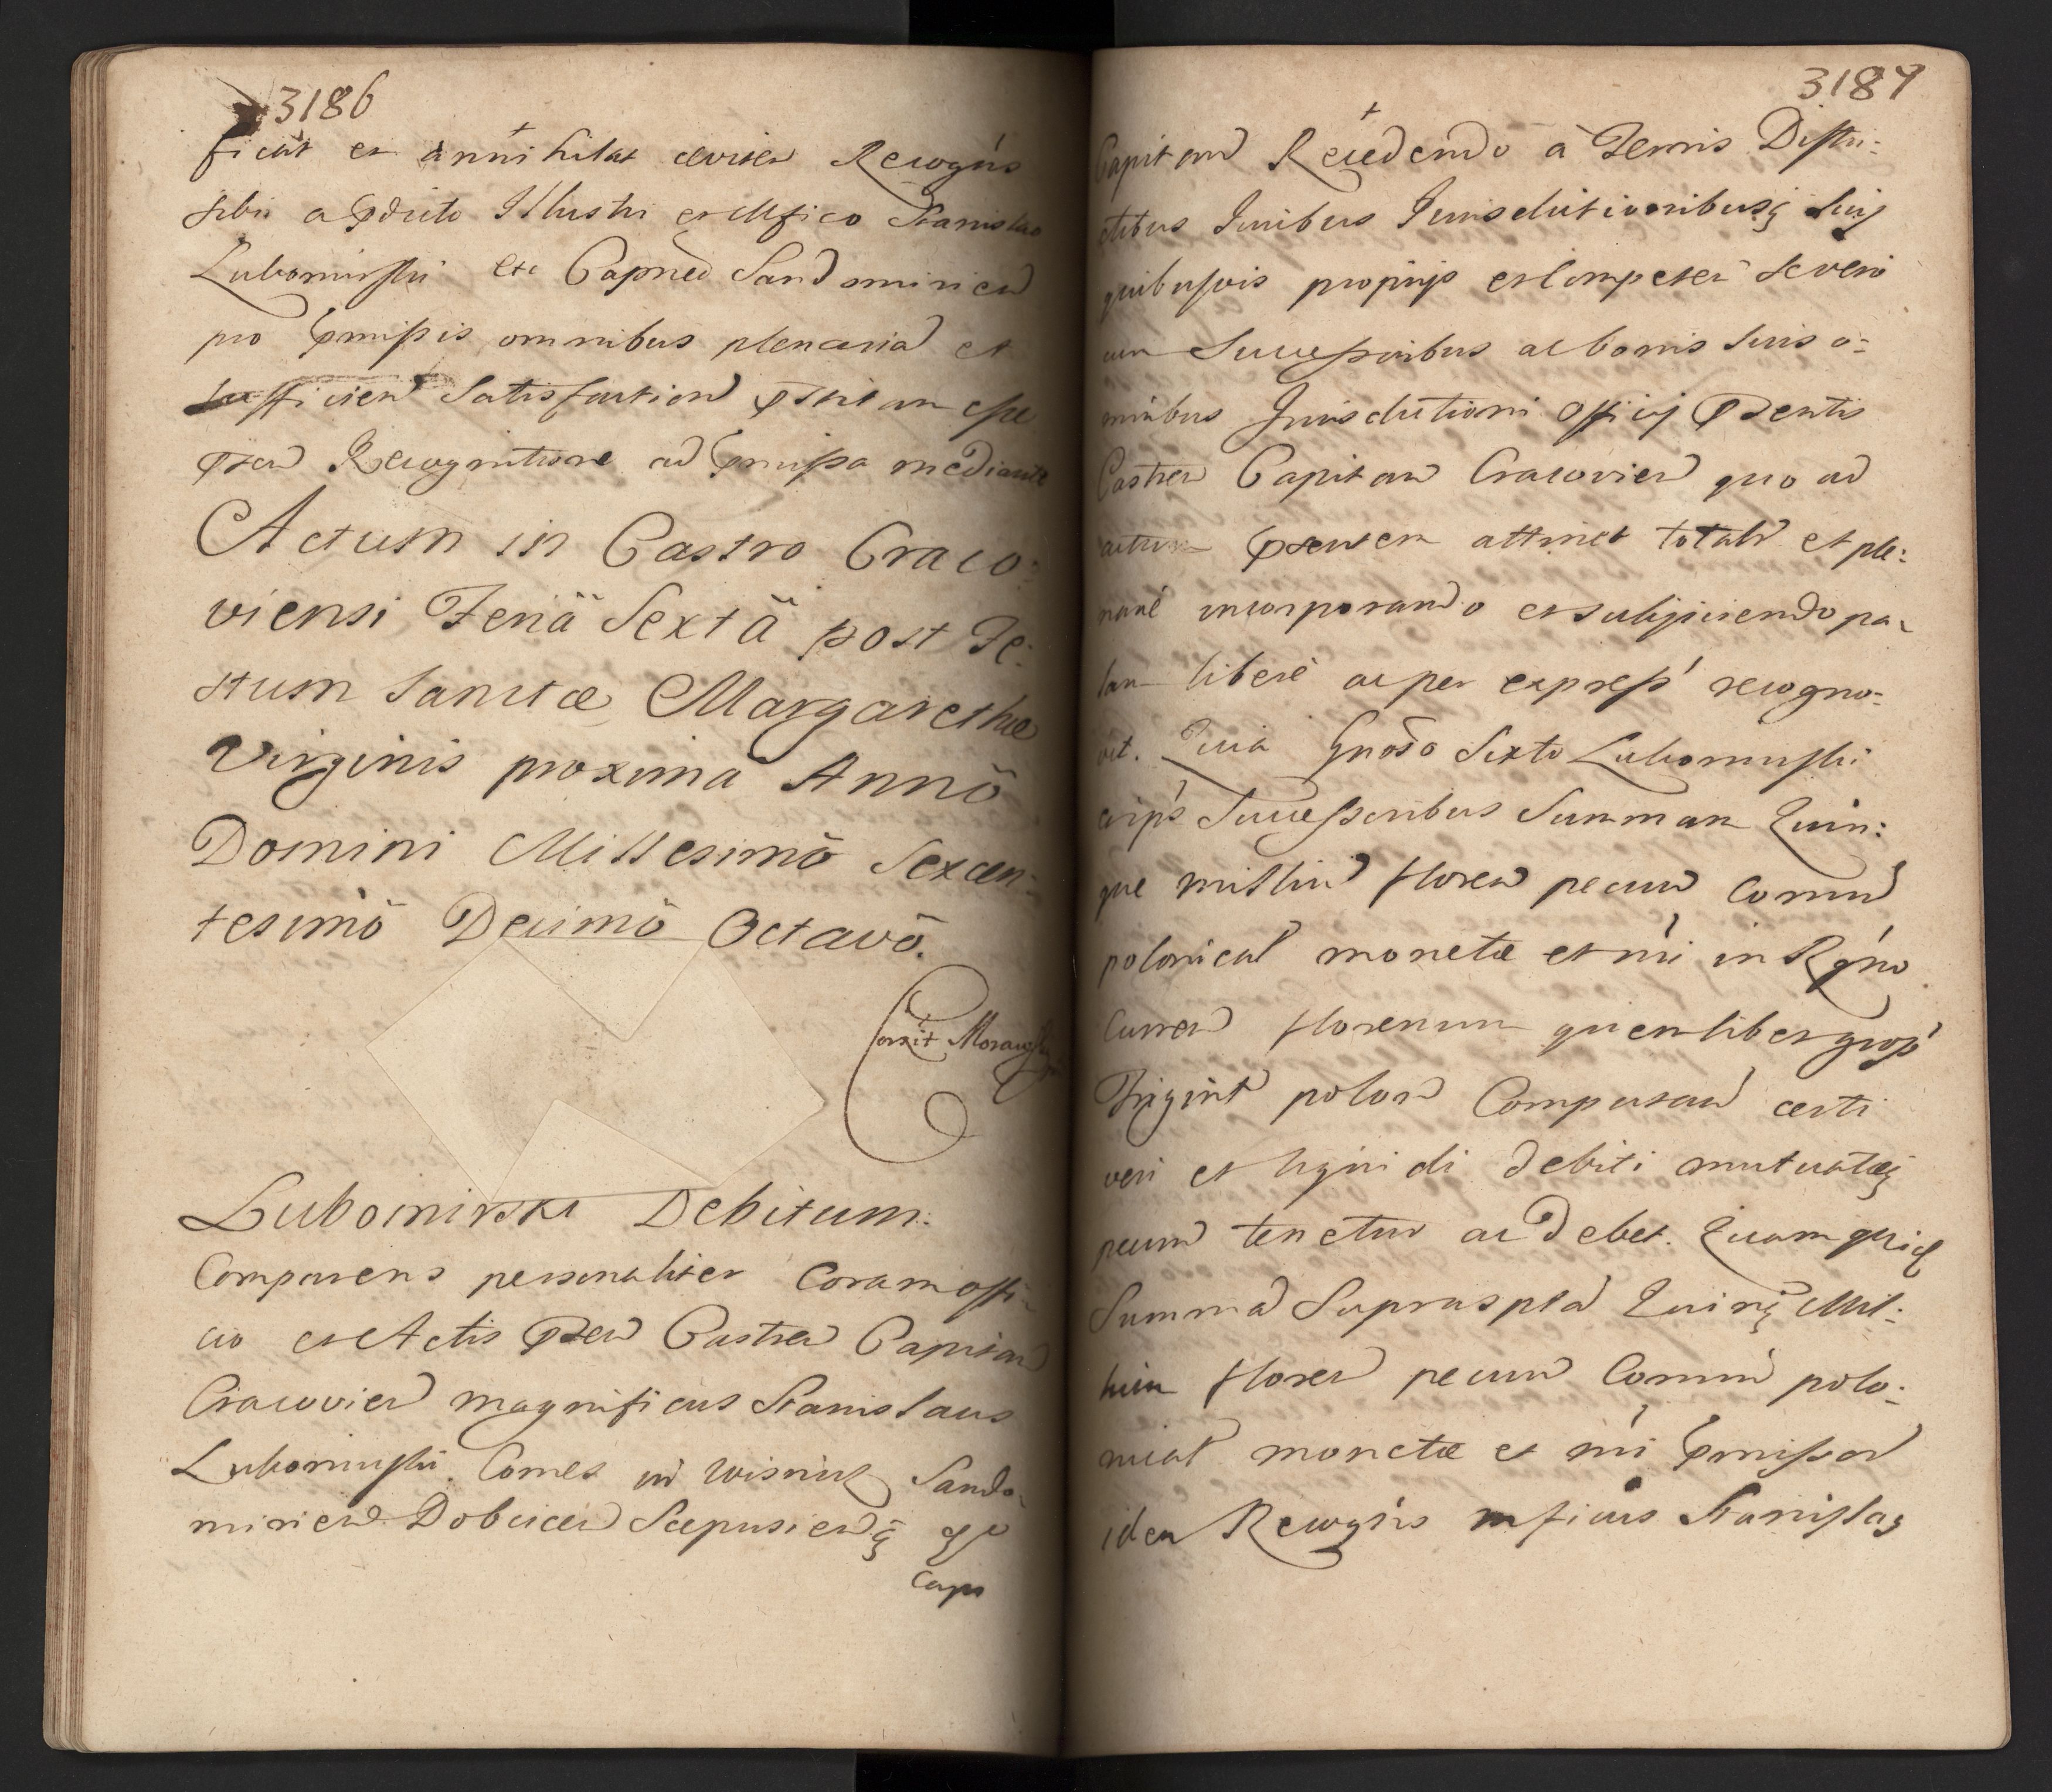 3186
ficat et annihilat ceviter Recogns
sibi a pdicto Illustri et Mfico Stanislao
Lubomirski etc Capneo Sandomirien
pro pmissis omnibus plenariã et
sufficien Satisfaction pstitam esse
psen Recognitione ad pmissa mediante
Actum in Castro Craco:
viensi Feriã Sextã post Fe:
stum Sanctæ Margarethæ
Virginis proxima Annõ
Domini Millesimõ Sexcen:
tesimõ Decimõ Octavõ.
Corrit Morawski
Lubomirski Debitum:
Comparens personaliter Coram offi:
cio et Actis psen Castren Capitan
Cracovien magnificus Stanislaus
Lubomirski Comes in Wisnicz Sando:
mirien Dobcicen Scepusienq
Capi
3187
Capitan Recedendo à Terris Distri:
ctibus Juribus Jurisdictionibusq suis
quibusvis proprijs et Competen se vero
cum Successoribus ac bonis suis o:
mnibus Jurisdictioni officij psentis
Castren Capitan Cracovien quo ad
actum psentem attinet totalr et ple:
narié incorporando et subjiciendo pa:
lam liberè ac per express recogno:
vit. Quia Gnoso Sixto Lubomirski
eiusq Successoribus Summam Quin:
que milliu floren pecun Comun
polonical monetæ et nri in Rgno
Curren florenum quemlibet gross
Trigint polon Computan certi
veri et liquidi debiti mutuatæq
pecun tenetur ac debet. Quam quid
Summã Supraspta Quinq Mil:
lium floren pecun Comun polo:
nical monetæ et nri pmissor
idem Recogns mficus Stanislaq